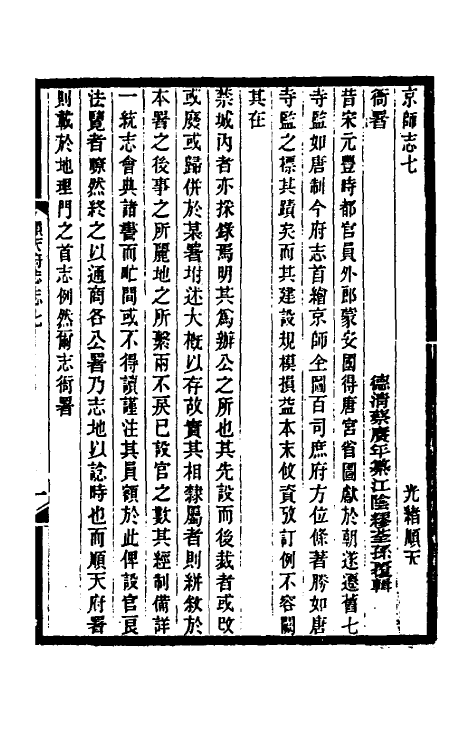 京師志七 光緒順天
衙署 德清蔡賡年纂江陰繆荃孫覆輯
昔宋元豐時都官員外郎蒙安國得唐宮省圖獻於朝遂遷舊七
寺監如唐制今府志首繪京師全圖百司庶府方位條著勝如唐
寺監之標其蹟矣而其建設規模損益本末攸資攷訂例不容闕
其在
禁城內者亦採錄焉明其為辦公之所也其先設而後裁者或改
或廢或歸併於某署坿述大概以存故實其相隸屬者則絣敘於
本署之後事之所麗地之所繫兩不戾已設官之數其經制備詳
一統志會典諸書而甿間或不得讀謹注其員額於此俾設官良
法覽者瞭然終之以通商各公署乃志地以諗時也而順天府署
則載於地理門之首志例然爾志衙署
順天府志志七
一